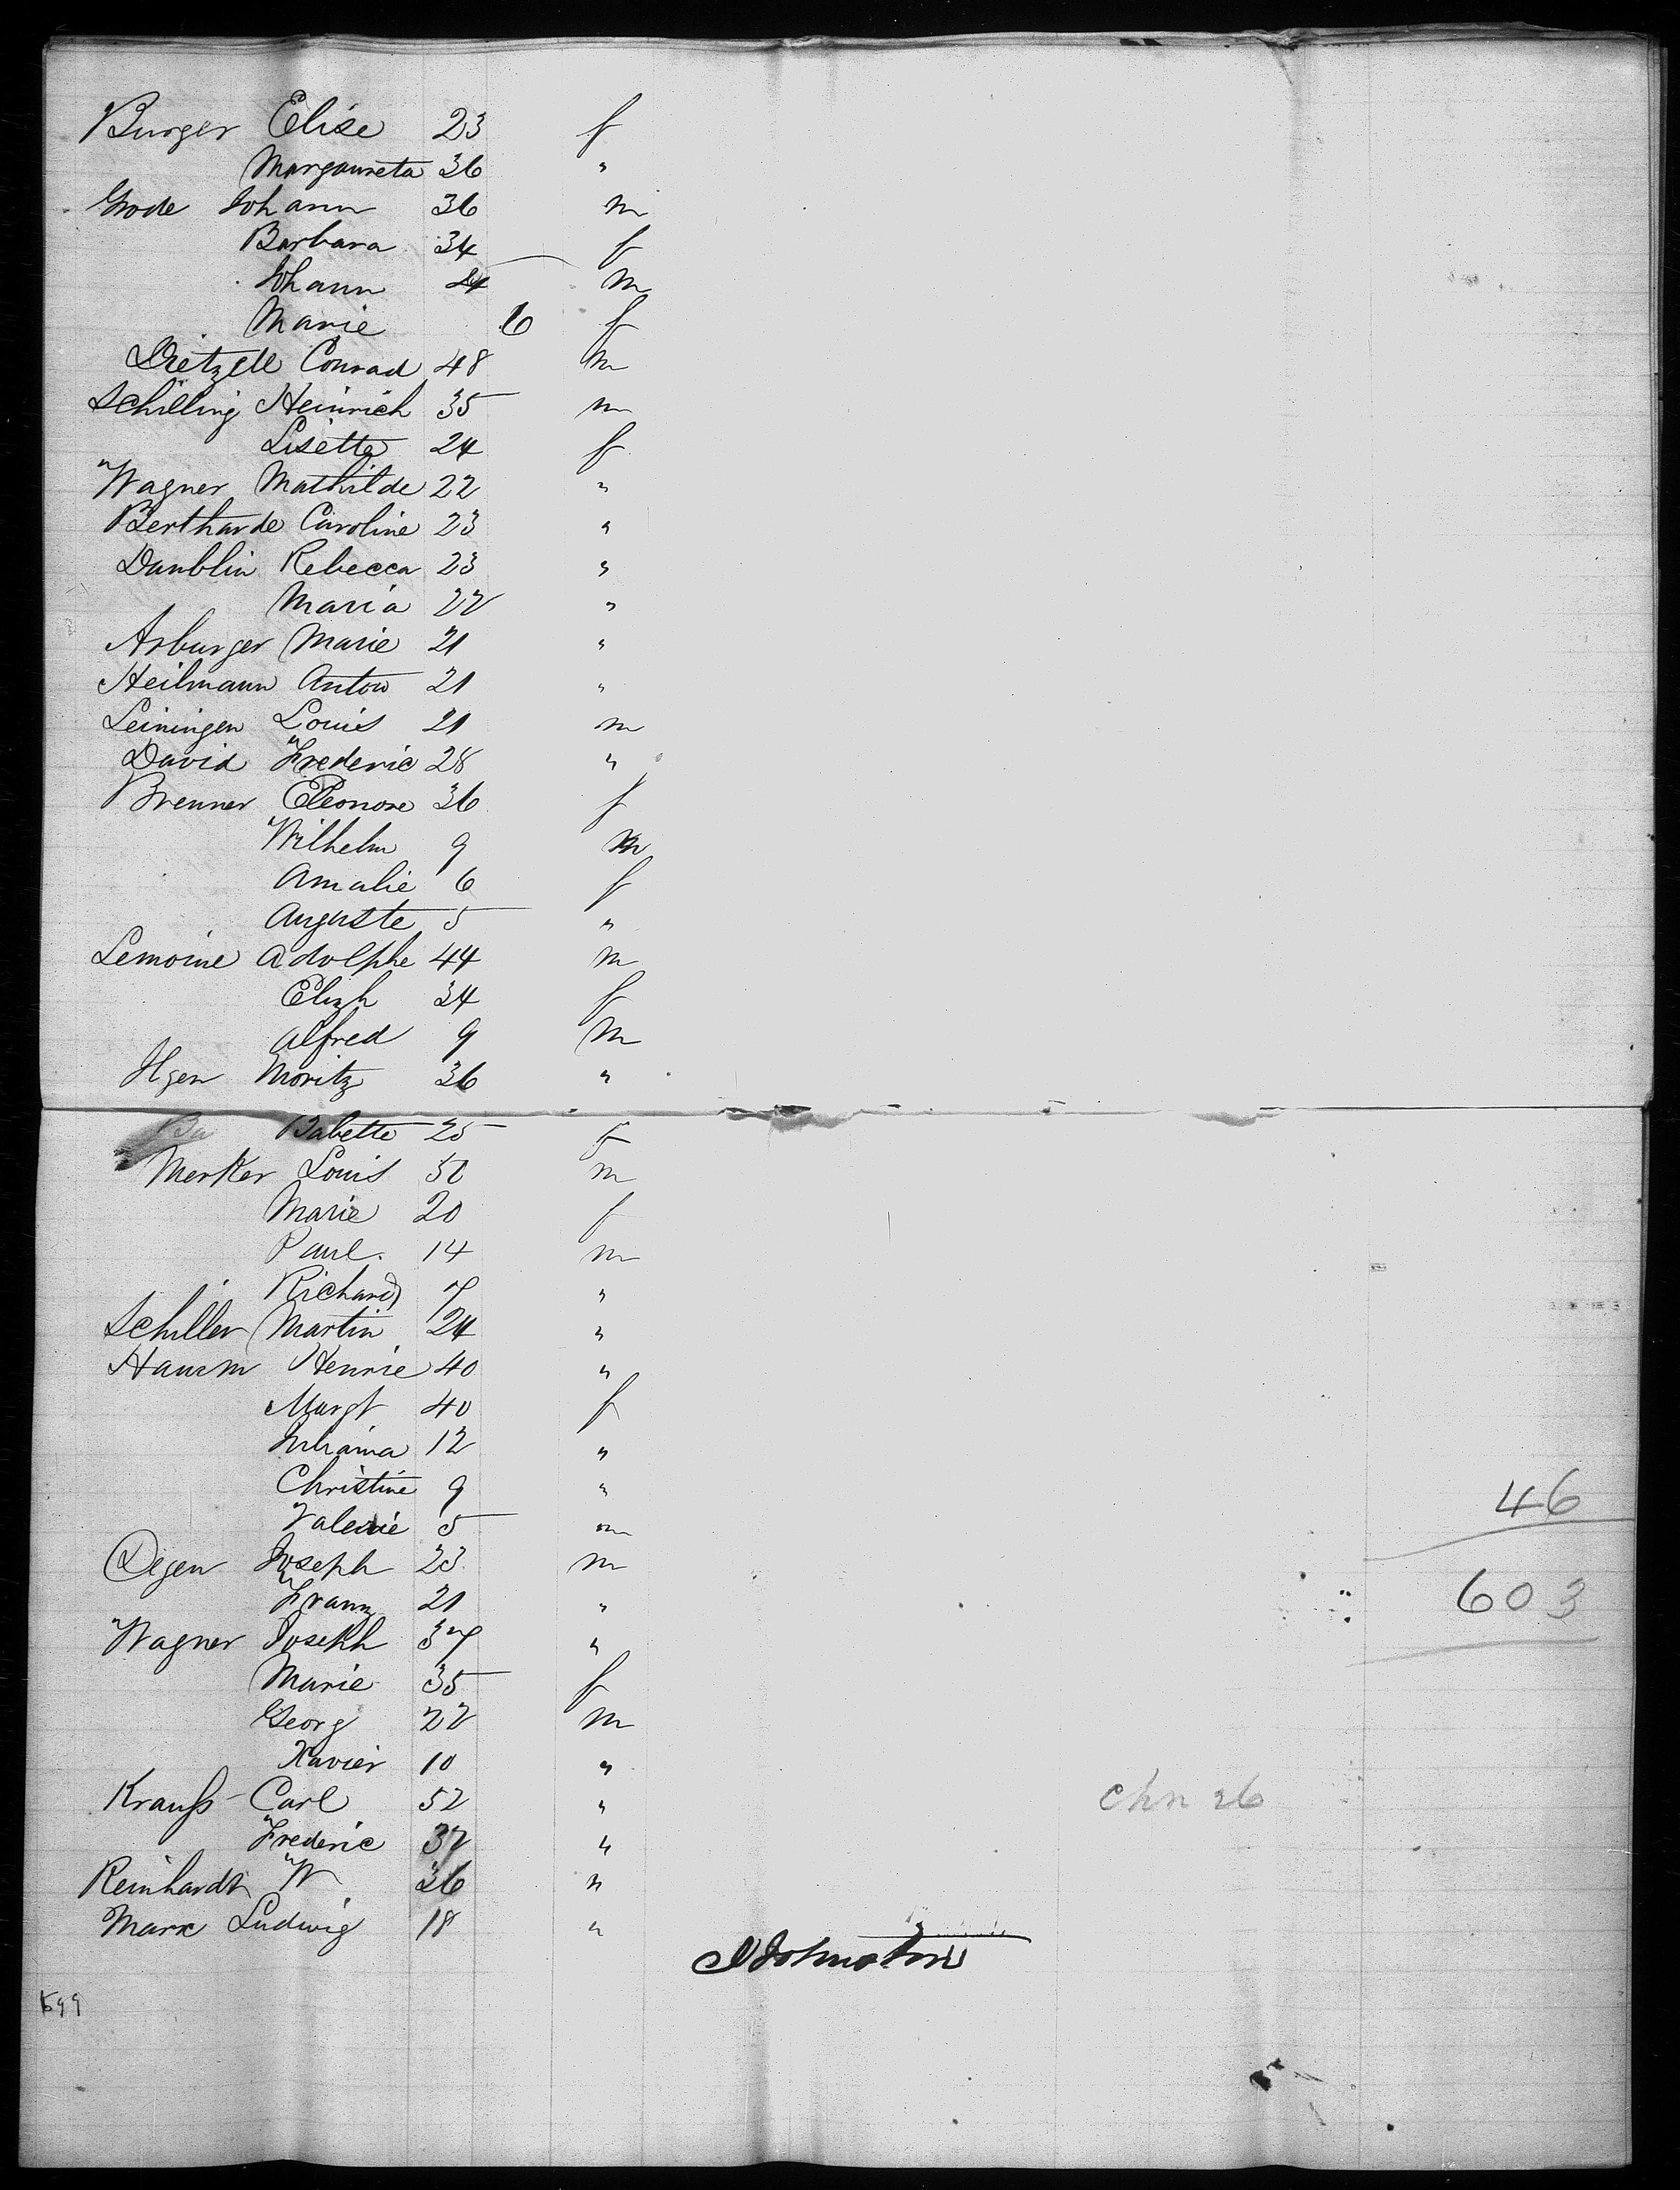 Burger Elise 23 f
Margaureta 36 "
Grode Johann 36 m
Barbara 34 f
Johann m
Marie 6 f
Dietzell Conrad 48 m
Schilling Heinrich 35 m
Lisette 24 f
Wagner Mathilde 22 "
Bertharde Caroline 23 "
Danblin Rebecca 23 "
Maria 22 "
Arburger Marie 21 "
Heilmann Anton 21 "
Leiningen Louis 21 m
David Frederic 28 "
Brenner Eleonore 36 f
Wilhelm 9 m
Amalie 6 f
Auguste 5 "
Lemoine Adolphe 44 m
Elizh 34 f
Alfred 9 m
Ilgen Moritz 36 "
Ba Babette 25 f
Merker Louis 50 m
Marie 20 f
Paul. 14 m
Richard 7 "
Schiller Martin 24 "
Hamm Henrie 40 "
Margt 40 f
12 "
Christine 9 "
Valerie 5 m
46
Degen Joseph 23 m
Franz 21 "
603
Wagner Joseph 37 "
Marie 35 f
Georg 22 m
Xavier 10 "
Krauß Carl 52 "
chn 26
Frederic 32 "
Reinhardt W 26 "
Marx Ludwig 18 "
Johnston
599